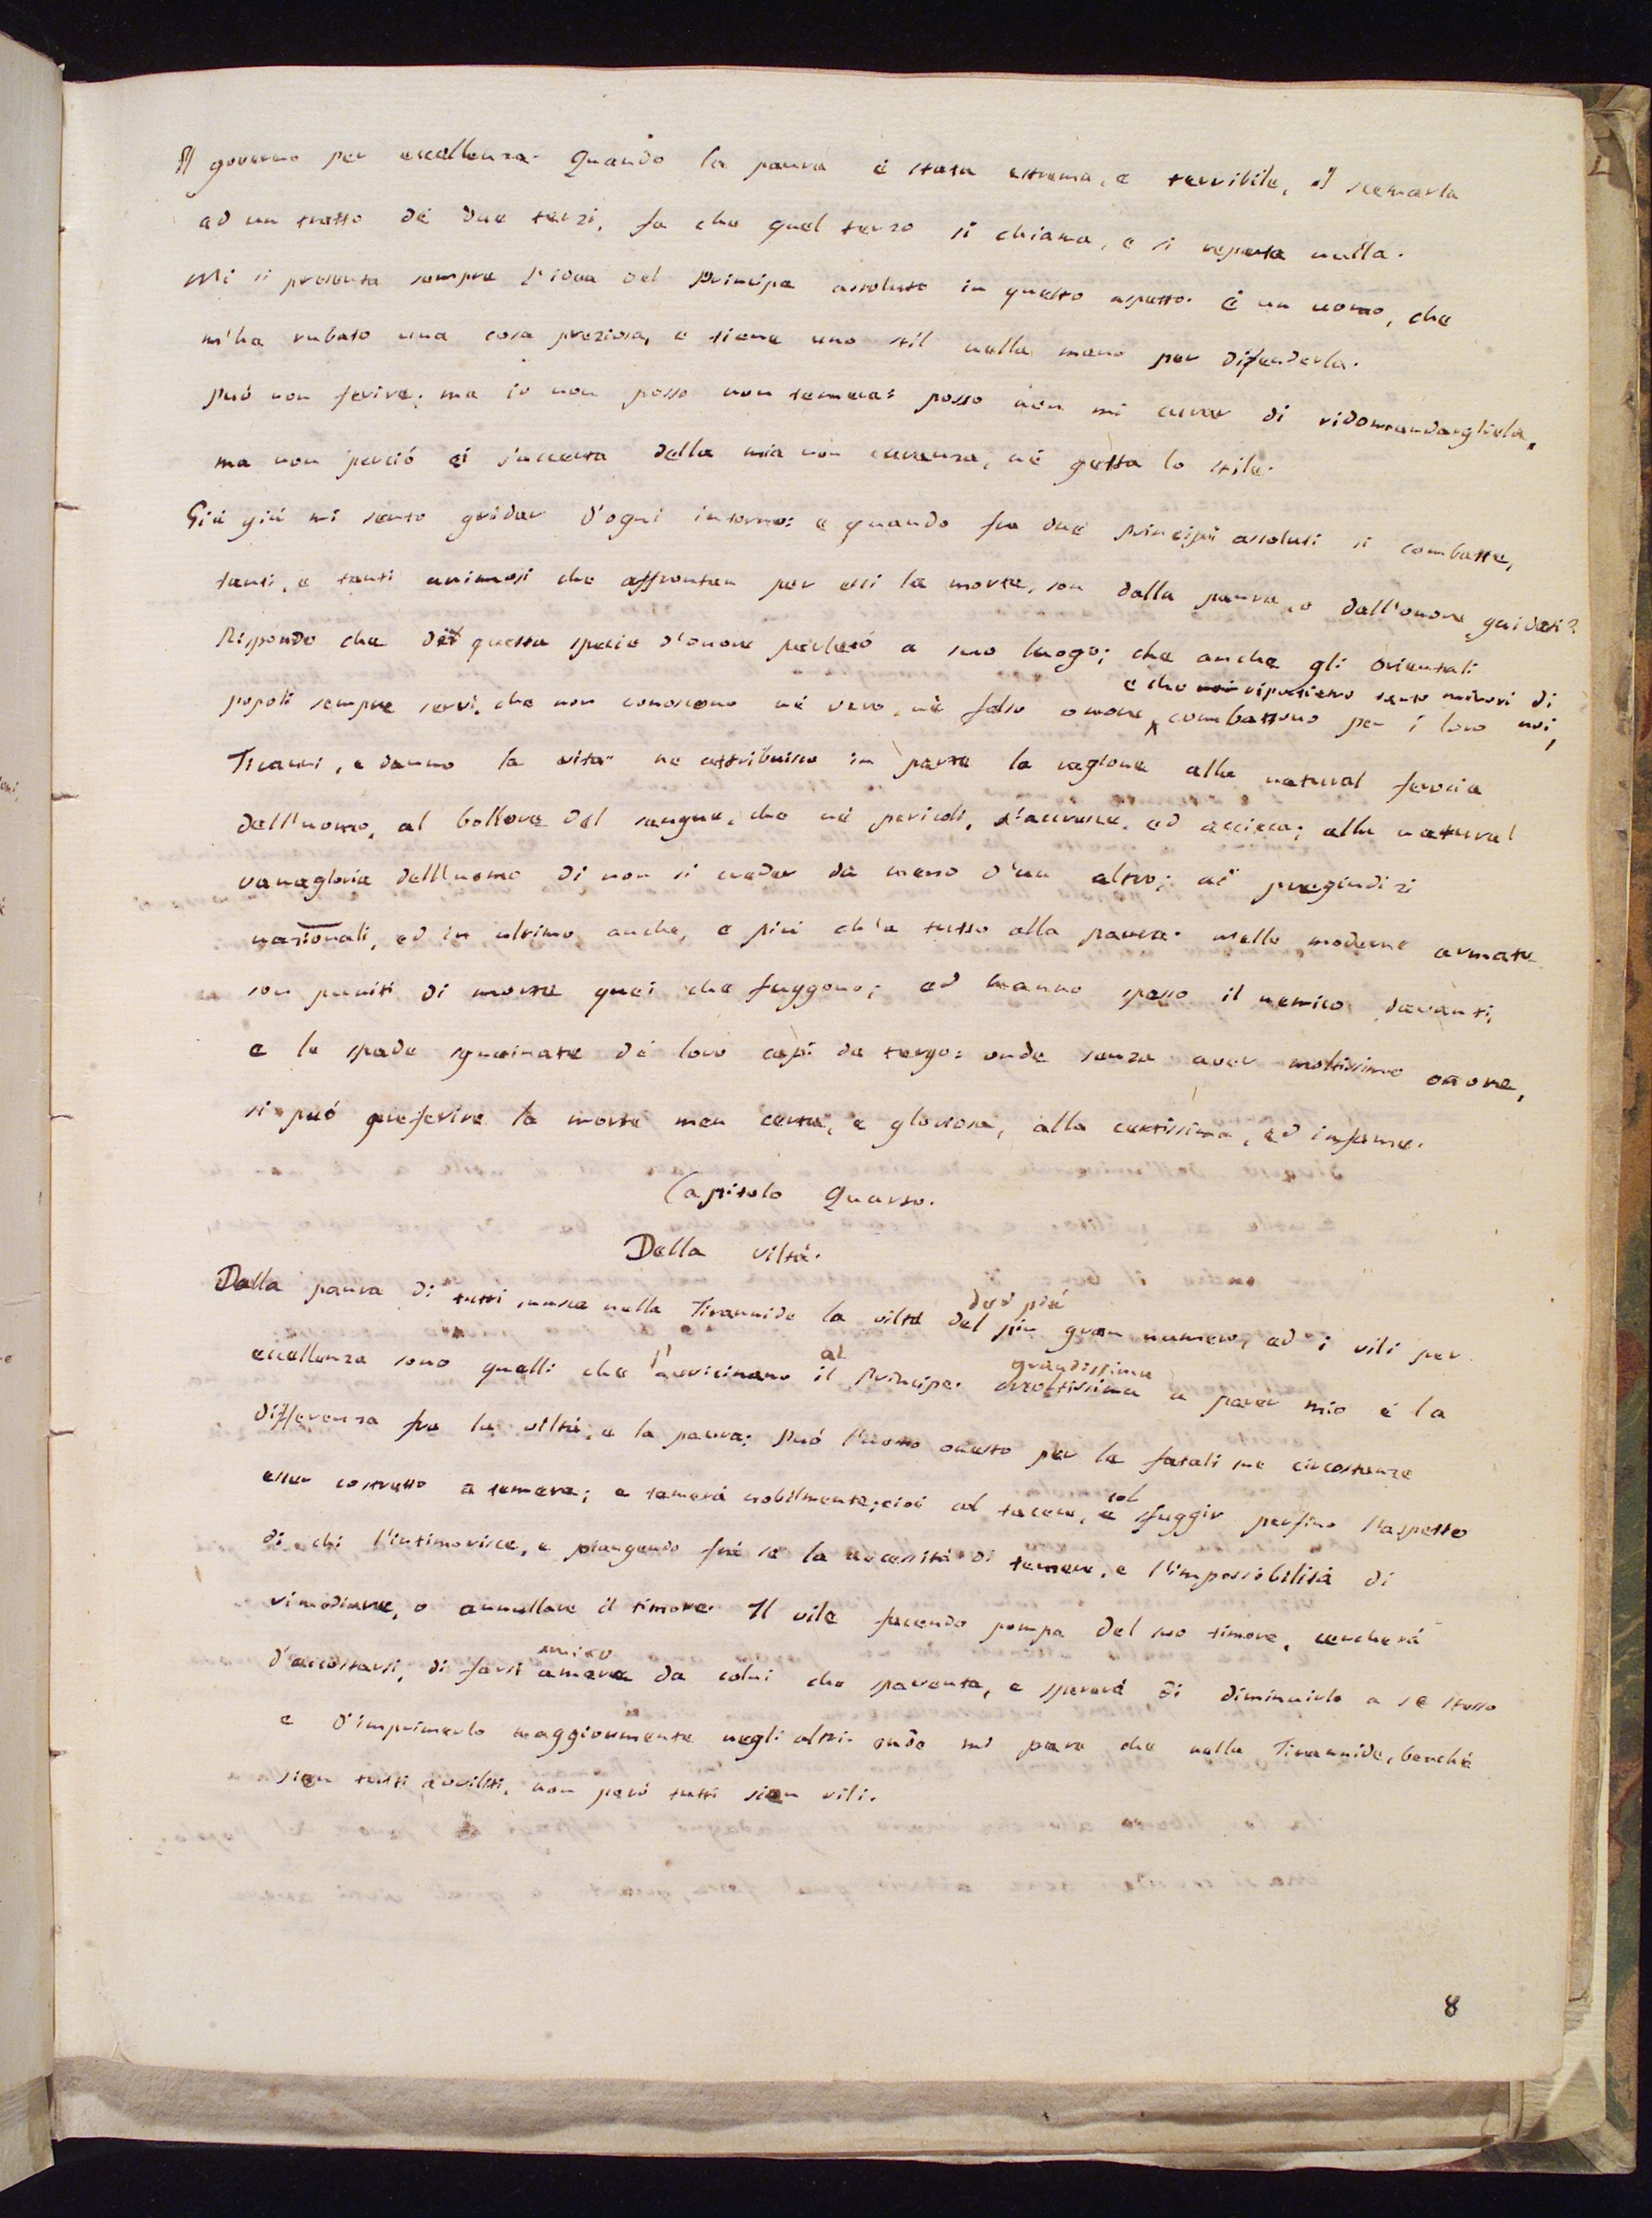 Il governo per eccellenza. Quando la paura è stata estrema, e terribile, il scemarla
ad un tratto dè due terzi, fa che quel terzo si chiama, e si reputa nulla.
Mi si presenta sempre l'idea del Principe assoluto in questo aspetto. È un uomo, che
m'ha rubato una cosa preziosa, e tiene uno stil nella mano per difenderla.
può non ferire; ma io non posso non temere: posso non mi curar di ridomandargliela,
ma non perciò ei s'accerta della mia non curanza, nè getta lo stile.
Già già mi sento gridar d'ogni intorno: e quando fra due principi assoluti si combatte,
tanti, e tanti animosi che affrontan per essi la morte, son dalla paura, o dall'onore guidati?
Rispondo che di questa specie d'onore parlerò a suo luogo; che anche gli orientali
e che non riputiamo tanto minori di
popoli sempre servi, che non conoscono nè vero, nè falso onore combattono per i loro noi,
Tiranni, e danno la vita. ne attribuisco in parte la ragione alla natural ferocia
dell'uomo, al bollore del sangue, che nè pericoli, s'accresce, ed accieca; alla natural
vanagloria dell'uomo di non si creder da meno d'un altro; ai pregiudizi
nazionali, ed in ultimo anche, e più ch'a tutto alla paura. nelle moderne armate
son puniti di morte quei che fuggono; ed hanno spesso il nemico davanti,
e le spade sguainate dè loro capi da tergo: onde senza aver moltissimo onore,
si può preferire la morte men certa, e gloriosa, alla certissima, ed infame.
Capitolo Quarto.
Della viltà.
Dalla paura di tutti nasce nella Tirannide la viltà del più gran numero, ed i vili per
dei più
eccellenza sono quelli che s'avvicinano il Principe. moltissima a parer mio è la
al grandissima
differenza fra la viltà, e la paura: può l'uomo onesto per le fatali sue circostanze
esser costretto a temere; e temerà nobilmente; cioè col tacere, e col fuggir perfino l'aspetto
di chi l'intimorisce, e piangendo frà sè la necessità di temere, e l'impossibilità di
rimediare, o annullare il timore. Il vile facendo pompa del suo timore, cercherà
amico
d'accostarsi, di farsi amare da colui che spaventa, e spererà di diminuirlo a sè stesso
e d'imprimerlo maggiormente negli altri. onde mi pare che nella Tirannide, benchè
sien tutti avviliti, non però tutti sien vili.
8